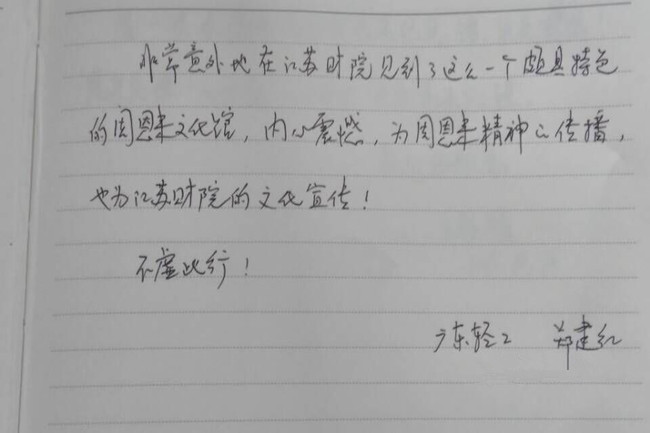 非常意外地在江苏财院见到了这么一个颇具特色
的周恩来文化馆，内心震憾，为周恩来精神的传播，
也为江苏财院的文化宣传！
不虚此行！
广东轻工 郑建红